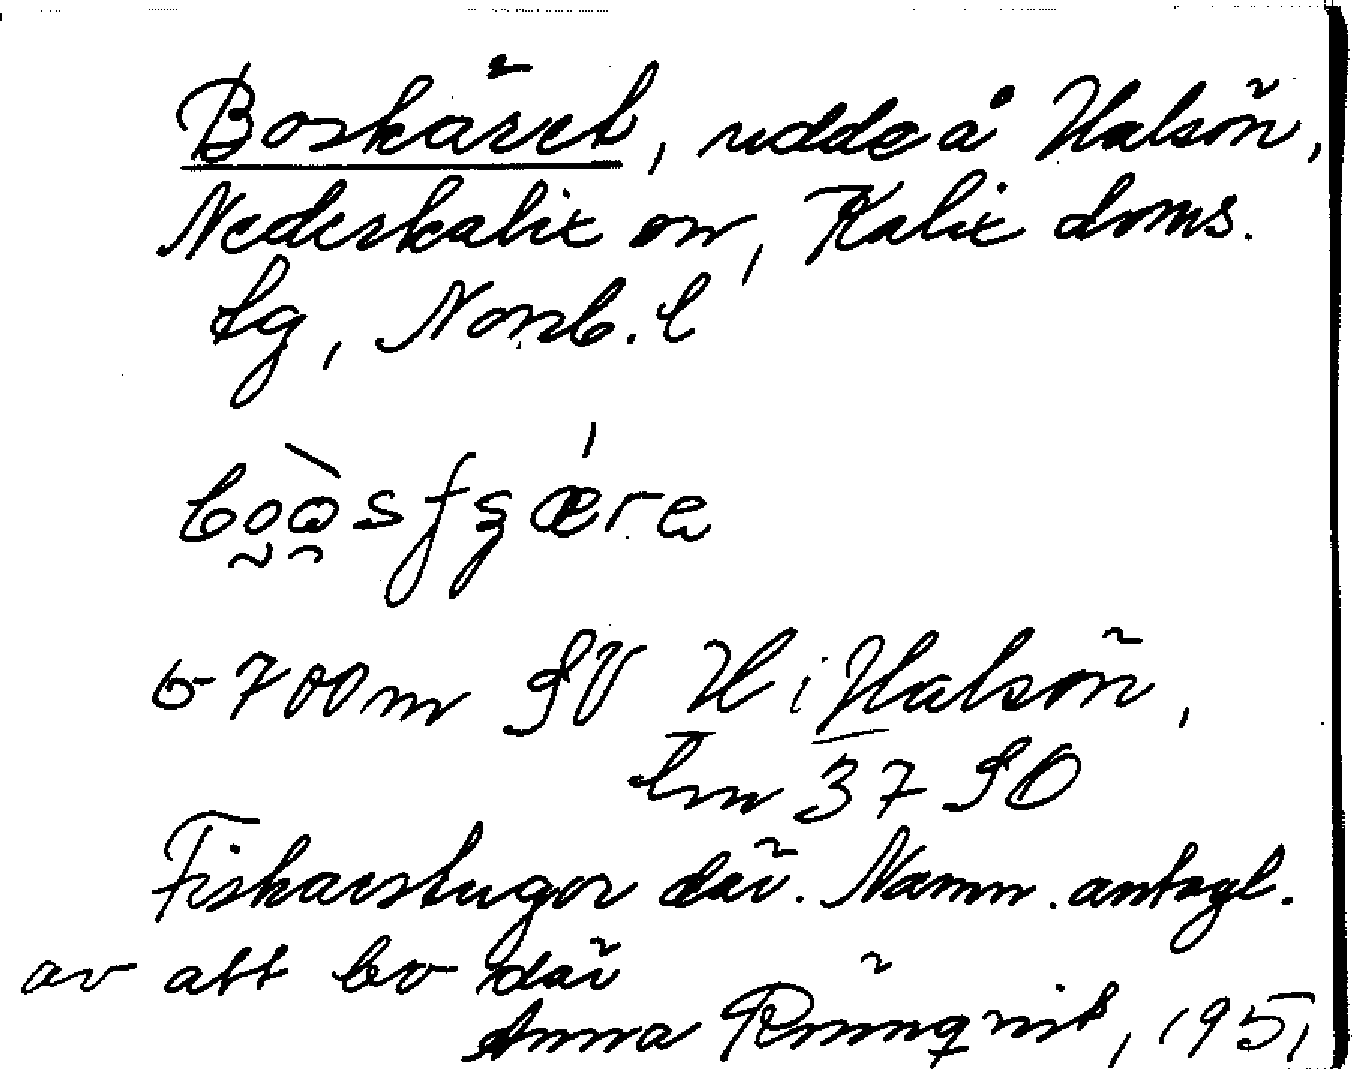 Boskäret, udde å Halsön,
Nederkalix sn, Kalix doms.
lg, Norrb. l
700 m SV H i Halsön,
km 37 SO
Fiskarstugor där. Namn. antagl.
av att bo där
Anna Rönnqvist, 1951